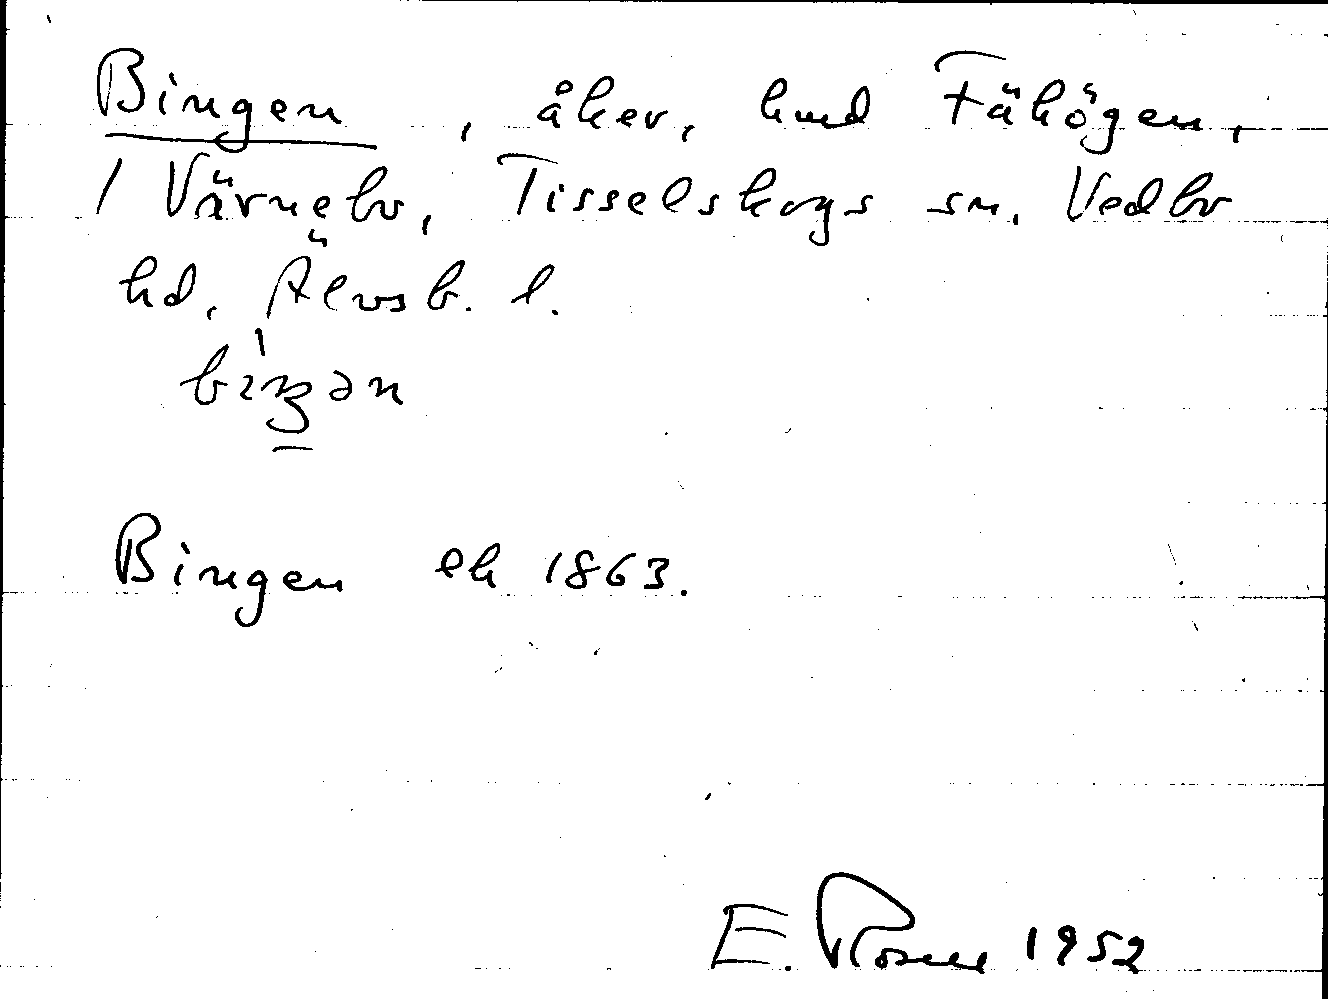 Bingen, åker, hmd Fähögen,
1 Värnebo, Tisselskogs sn, Vedbo
hd, Älvsb. l.
Bingen ek 1863.
E. 1952